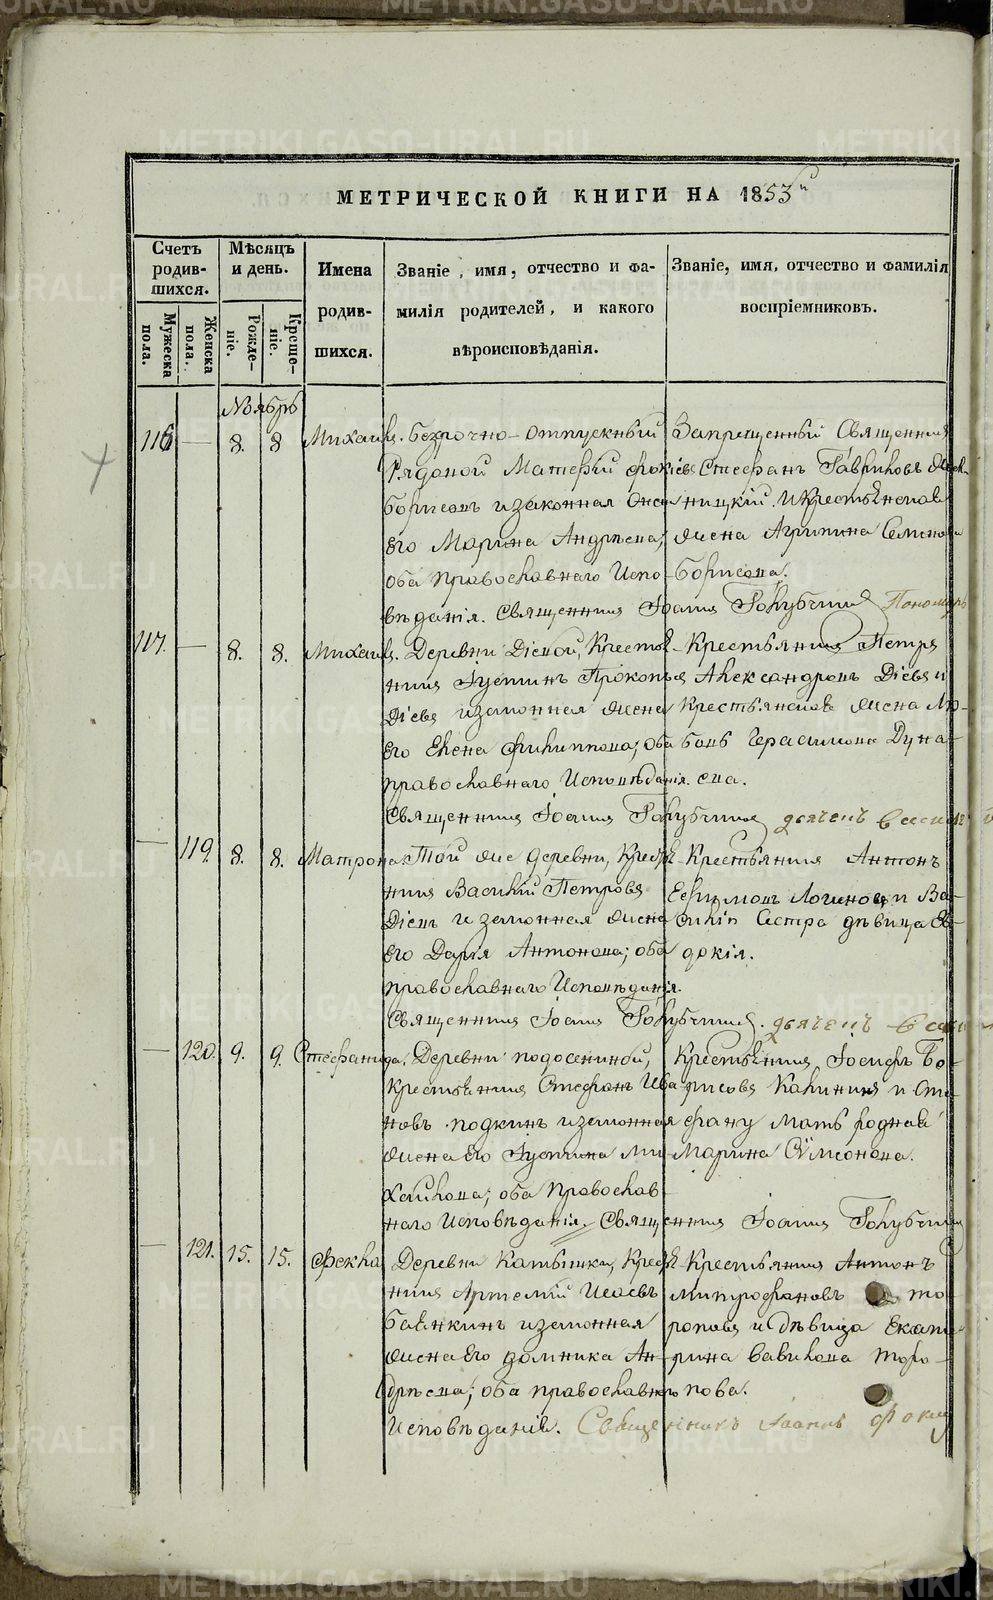 МЕТРИЧЕСКОЙ КНИГИ НА 1853й
Счетъ родив-шихся.
Мѣсяцъ и день.
Имена родив-шихся.
Званіе, имя, отчество и фа-
милія родителей, и какого
вѣроисповѣданія.
Званіе, имя, отчество и фамилія
воспріемниковъ.
Мужеска пола.
Женска пола.
Рожде-ніе.
Креще-ніе.
Ноябрь
116 — 8. 8 Михаилъ. безсрочно-отпускный
Рядовой Матѳей
Борисовъ и законная жена
его Марина Андрѣева;
оба православнаго Испо-
вѣданія. Священникъ Іоаннъ Голубчик
Запрещенный Священник
Стефанъ Гавриловъ
ницкій. И Крестьянская
жена Агрипина Семенова
Борисова.
Пономарь
117. — 8. 8. Михаилъ. Деревни Діевой, Крестья-
нинъ Іустинъ Прокопьевъ
Діевъ и законная жена
его Елена Филиппова; оба
православнаго Исповѣданія.
Священникъ Іоаннъ Голубчик
Крестьянинъ Петръ
Александровъ Діевъ и
Крестьянская жена Лю-
бовь Герасимова Дуна-
ева.
дьячекъ Василій
— 119. 8. 8. Матрона. Той же деревни, Крестья-
нинъ Василій Петровъ
Діевъ и законная жена
его Дарья Антонова; оба
православнаго Исповѣданія.
Священникъ Іоаннъ Голубчик
Крестьянинъ Антонъ
Ефимовъ Логиновъ и Ва-
силія Сестра дѣвица Ев-
докія.
дьячекъ Васил
— 120. 9. 9. Стефанида. Деревни Подосениной,
Крестьянинъ Стефанъ Ива-
новъ Подкинъ и законная
жена его Іустина Ми-
хайлова; оба Православ-
наго Исповѣданія. Священникъ Іоаннъ Голубчик
Крестьянинъ Іосифъ Бо-
рисовъ Калининъ и Сте-
фану Мать родная
Марина Сѵмеонова.
— 121. 15. 15. Фекла Деревни Катышки, Крестья-
нинъ Артемій Исаевъ
Баянкинъ и законная
жена его Домника Ан-
дрѣева; оба православнаго
Исповѣданія. Священникъ Іоаннъ
Крестьянинъ Антонъ
Митрофановъ То-
роповъ и дѣвица Екате-
рина Вавилова Торо-
пова.